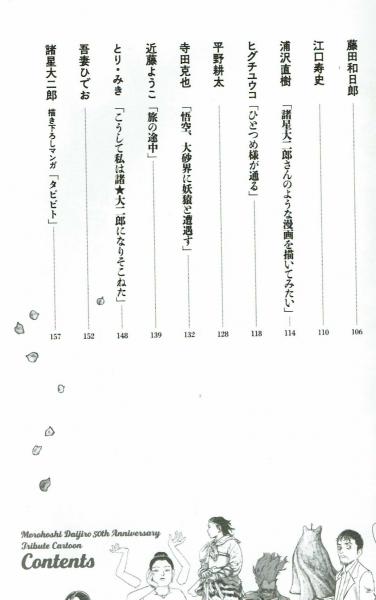 藤田和日郎 106
江口寿史 110
浦沢直樹「諸星大二郎さんのような漫画を描いてみたい」 114
ヒグチユウコ「ひとつめ様が通る」 118
平野耕太 128
寺田克也「悟空、大砂界に妖猿と遭遇す」 132
近藤ようこ「旅の途中」 139
とり・みき「こうして私は諸★大二郎になりそこねた」 148
吾妻ひでお 152
諸星大二郎 描き下ろしマンガ「タビビト」 157
Morohoshi Daijiro 50th Anniversary
Tribute Cartoon
Contents